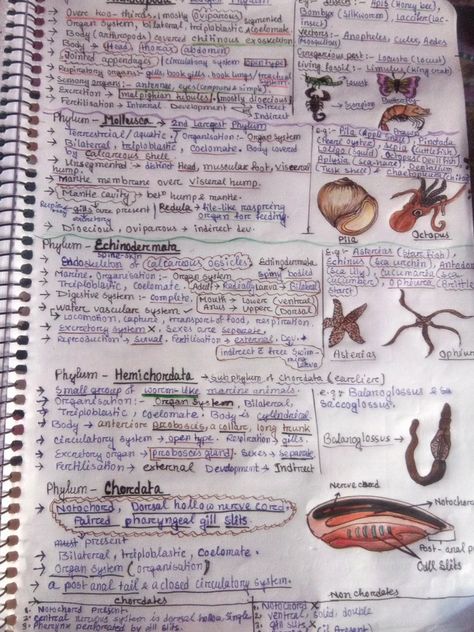 → Over two-thirds, mostly oviparous
organ system, bilateral, triploblastic, Coelomate. Segmented
→ Body (arthropods) covered chitinous exoskeleton
→ Body → (Head) (thorax) (abdomen)
→ Jointed appendages / circulatory system open type
Respiratory organs:- gills, book gills, book lungs, tracheal
→ Sensory organs:- antennae, eyes (compound & simple)
→ Excretion → malpighian tubules (mostly dioecious)
→ Fertilisation → Internal Development → Direct
Indirect
Apis (Honey bee)
Bombyx (silkworm), Laccifer (lac-
insect)
vectors:- Anopheles, Culex, Aedes
(Mosquitoes)
Gregarious pest:- Locusta (locust)
Living fossil:- Limulus (king crab)
Scorpion
Butterfly
Prawn
Phylum - Mollusca → 2nd Largest Phylum
→ Terrestrial / aquatic / Organisation:- Organ System
→ Bilateral, triploblastic, Coelomate. Body covered
by Calcareous shell
→ Unsegmented → distinct Head, muscular foot, visceral
hump.
→ Mantle membrane over visceral hump.
→ Mantle cavity → betn hump & mantle.
gills are present / Radula → file-like rasping
organ for feeding.
→ Dioecious oviparous → indirect dev.
e.g:- Pila (Apple snail), Pinctada
(Pearl oyster), Sepia (cuttlefish)
Loligo (squid), Octopus (Devil fish)
Aplysia (sea-hare), Dentalium
Tusk shell & chaetopleura (chiton)
Pila
Octopus
Phylum - Echinodermata
spine-skin
Endoskeleton of (calcareous ossicles) Echinodermata
→ Marine, Organisation:- Organ System Spiny bodied
→ Triploblastic, coelomate. Adult → Radially larva → Bilateral
→ Digestive system → complete. Mouth → lower (ventral)
Anus → Upper (Dorsal)
→ water vascular system
↳ Locomotion, capture, transport of food, respiration.
→ Excretory system X, Sexes are separate,
→ Reproduction → sexual, Fertilisation → external, Dev.
indirect & free swimming
larva
E.g:- Asterias (star fish),
Echinus (sea urchin), Antedon
(sea lily), cucumaria (sea
cucumber), Ophiura (Brittle
Asterias
Ophiu
Phylum - Hemichordata → subphylum of chordata (earlier)
→ Small group of worm-like marine animals.
→ Organisation:- Organ System Bilateral,
→ Triploblastic, Coelomate. Body is cylindrical
→ Body → anterior proboscis, a collar, long trunk
→ circulatory system → open type. Respiration → gills.
→ Excretory organ → proboscis gland. Sexes → separate
→ Fertilisation → external Development → Indirect
e.g:- Balanoglossus &
Saccoglossus.
Balanoglossus →
Phylum - Chordata
→ Notochord, Dorsal hollow nerve cord,
Paired pharyngeal gill slits.
must present
→ Bilateral, triploblastic, Coelomate.
→ Organ System (organisation)
→ a post anal tail & a closed circulatory system.
Nerve chord
Notochord
Post-anal
Gill slits
chordates
Non chordates
1. Notochord Present.
2. central nervous system is dorsal hollow, single
3. Pharynx perforated by gill slits.
1. Notochord X
2. ventral, solid, double
3. gill slits X